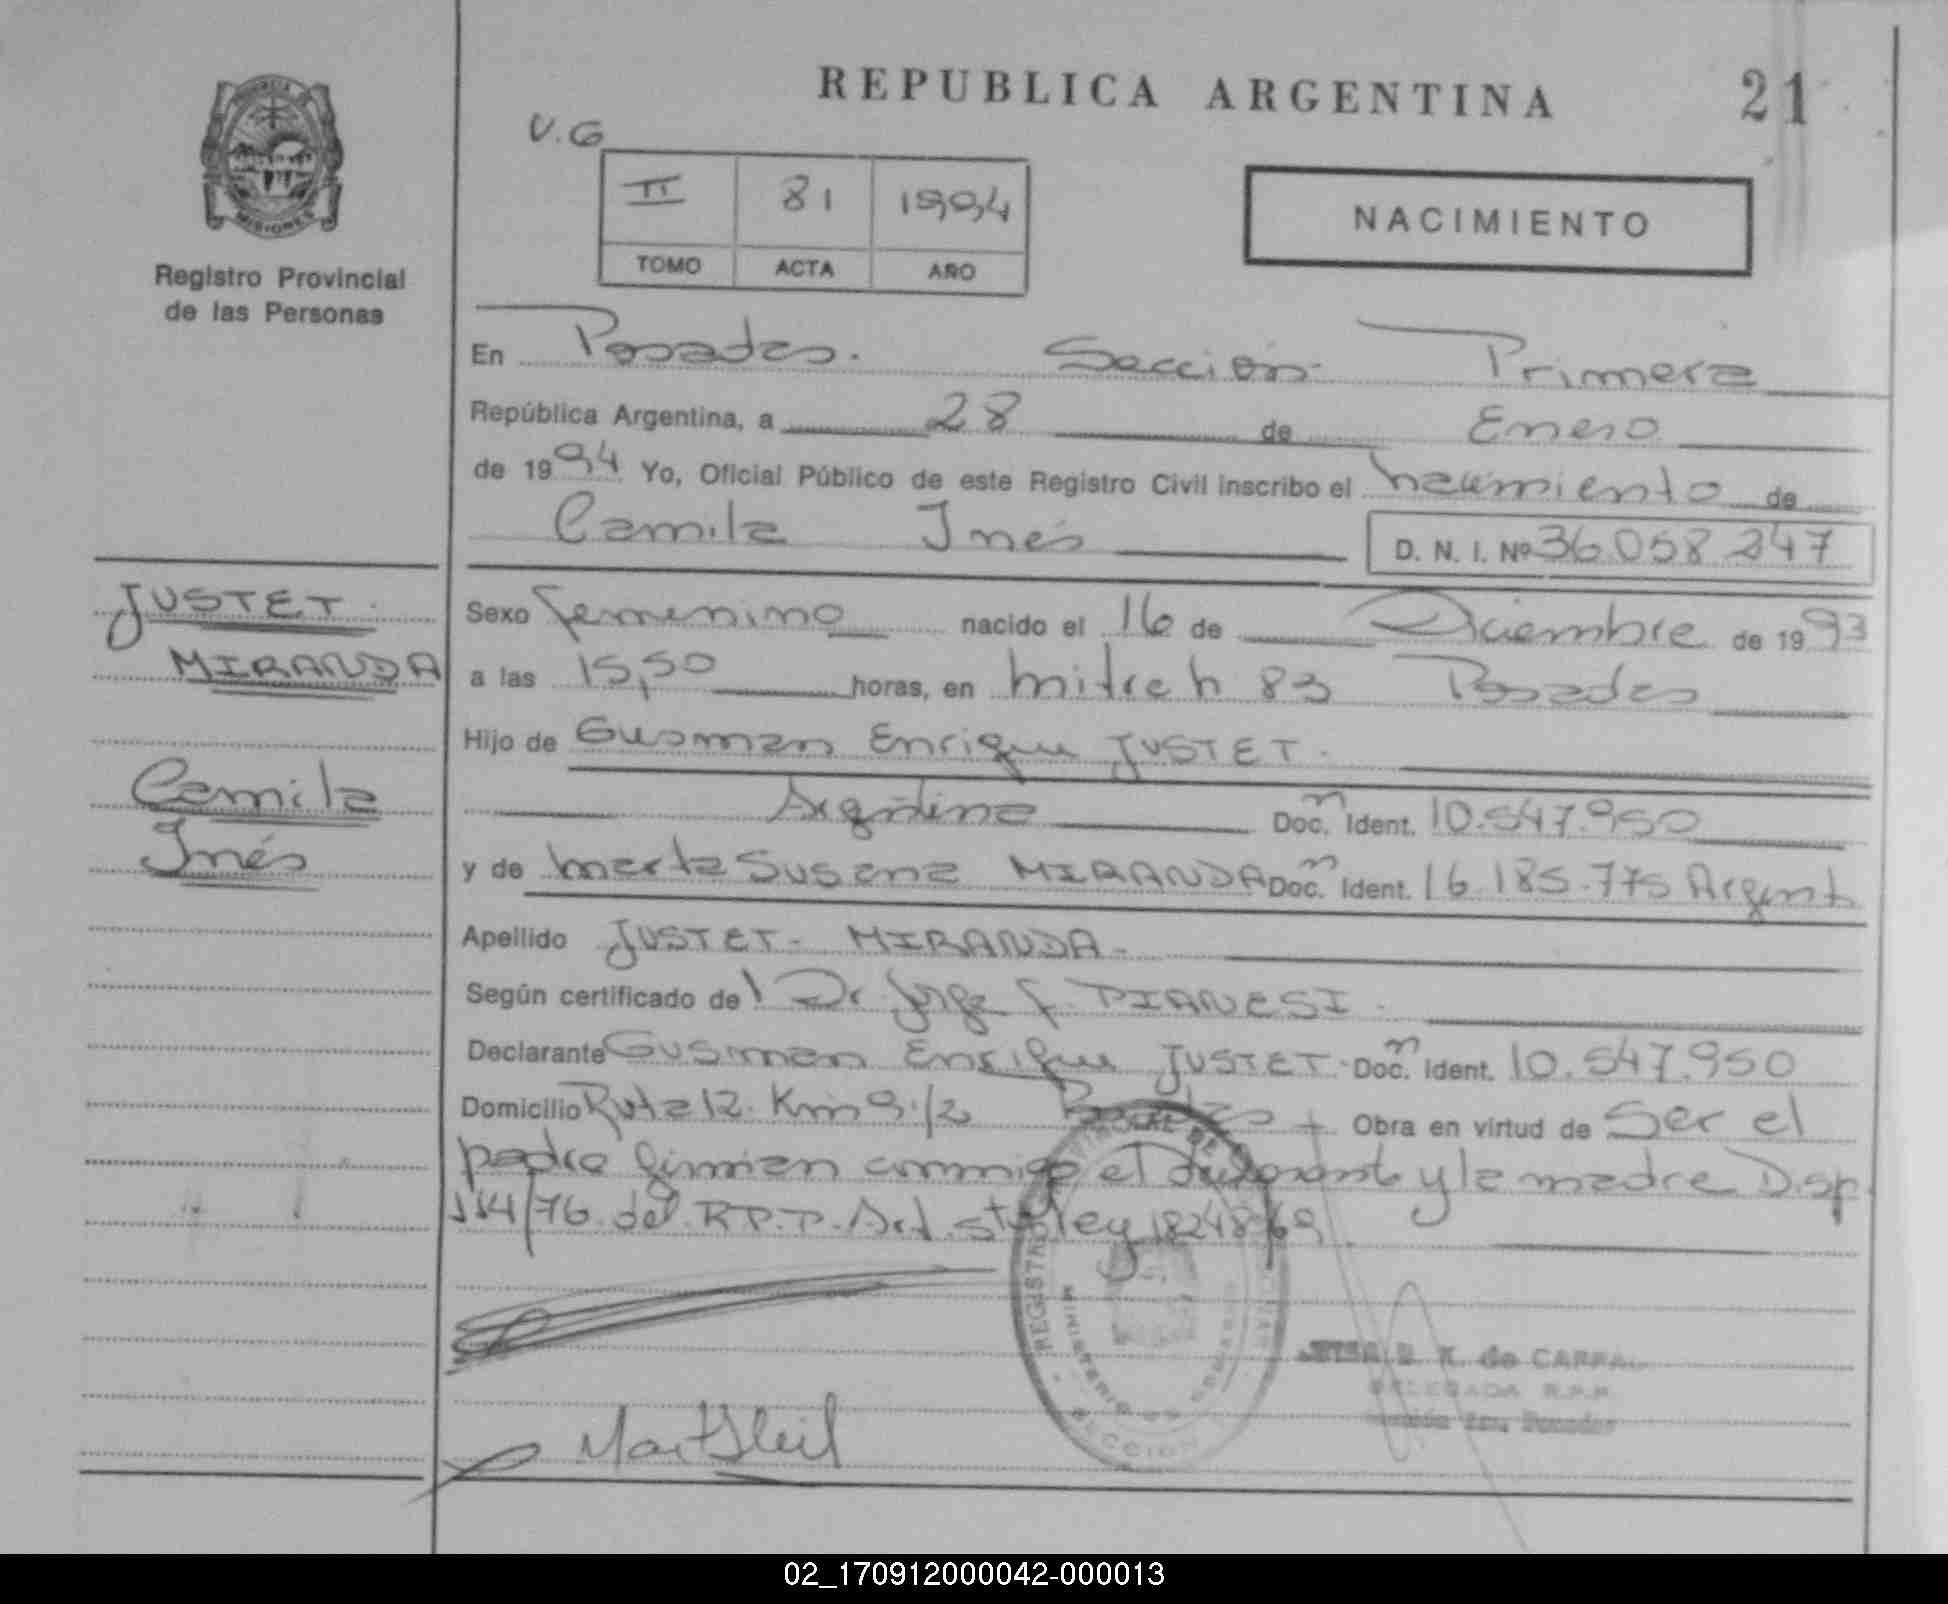 REPUBLICA ARGENTINA
21
V.G
II 81 1994
TOMO ACTA AÑO
NACIMIENTO
MISIONES
Registro Provincial
de las Personas
En Posadas. Sección Primera
República Argentina, a 28 de Enero
de 1994 Yo, Oficial Público de este Registro Civil inscribo el nacimiento de
Camila Inés D. N. I. Nº 36.058.247
JUSTET
MIRANDA
Camila
Inés
Sexo femenino nacido el 16 de Diciembre de 1993
a las 15,50 horas, en mitre n 83 Posadas
Hijo de Gusman Enrique JUSTET.
Argentino Doc. Ident. 10.547.950
y de Marta Susana MIRANDA Doc. Ident. 16.185.775 Argent
Apellido JUSTET - MIRANDA -
Según certificado del Dr. Jorge F. PIANESI.
Declarante Gusman Enrique JUSTET. Doc. Ident. 10.547.950
Domicilio Ruta 12. Km 9 1/2 Posadas Obra en virtud de Ser el
padre firman conmigo el y la madre Disp
/76 del R.P.P. Art. ley 18248/69
REGISTRO DE
MINISTERIO DE
SECCION
de
DELEGADA R.P.P.
02_170912000042-000013